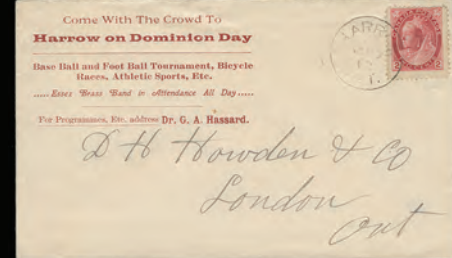 Come With The Crowd To
Harrow on Dominion Day
Base Ball and Foot Ball Tournament, Bicycle
Races, Athletic Sports, Etc.
..... Essex Brass Band in Attendance All Day .....
For Programmes, Etc. address Dr. G. A. Hassard.
D H Howden & Co
London
Ont